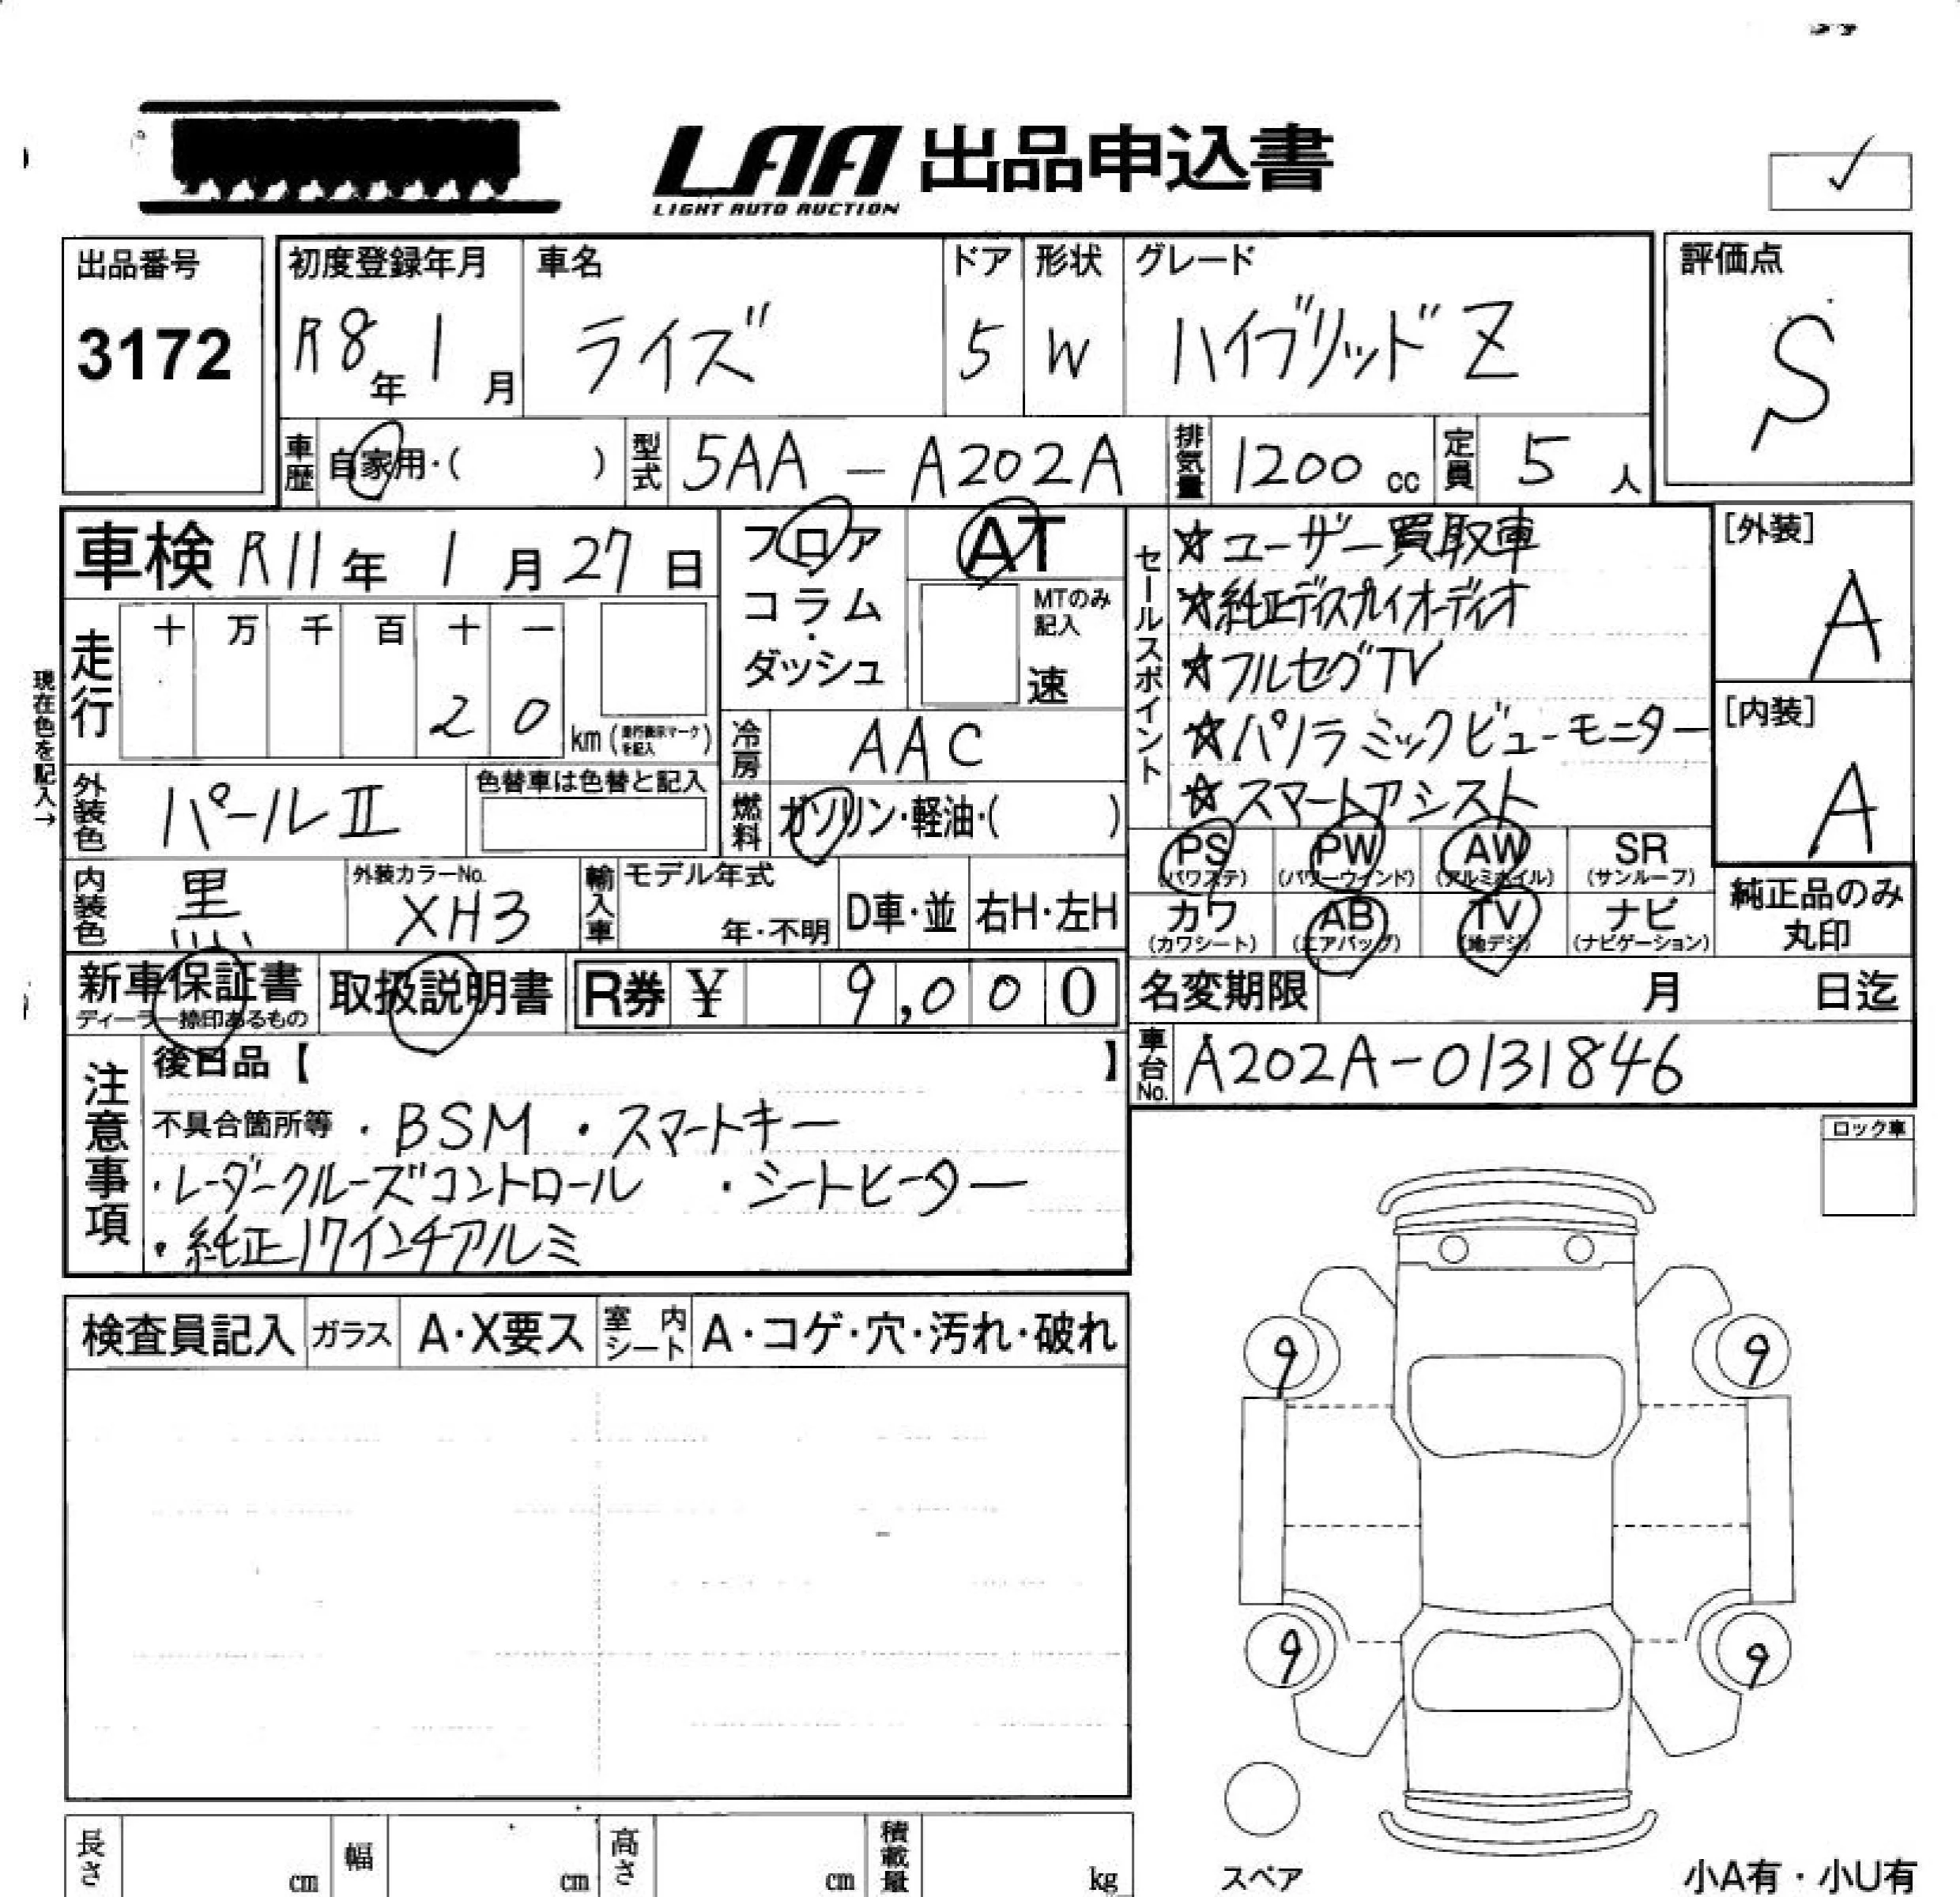 LAA 出品申込書
LIGHT AUTO AUCTION
出品番号
3172
初度登録年月
R8年 1月
車名
ライズ
ドア
5
形状
W
グレード
ハイブリッド Z
評価点
S
車歴 自家用・( )
型式 5AA-A202A
排気量 1200 cc
定員 5 人
車検 R11年 1月 27日
走行
十 万 千 百 十 一
2 0
km (走行表示マークを記入)
現在色を記入→
外装色 パールⅡ
色替車は色替と記入
内装色 黒
外装カラーNo.
XH3
フロア
コラム
・
ダッシュ
AT
MTのみ
記入
速
冷房 AAC
燃料 ガソリン・軽油・( )
輸入車
モデル年式
年・不明
D車・並
右H・左H
セールスポイント
☆ユーザー買取車
☆純正ディスプレイオーディオ
☆フルセグTV
☆パノラミックビューモニター
☆スマートアシスト
[外装]
A
[内装]
A
PS (パワステ)
PW (パワーウインド)
AW (アルミホイル)
SR (サンルーフ)
カワ (カワシート)
AB (エアバッグ)
TV (地デジ)
ナビ (ナビゲーション)
純正品のみ
丸印
新車保証書
ディーラー捺印あるもの
取扱説明書
R券 ¥ 9,000
名変期限 月 日迄
車台No. A202A-0131846
注意事項
後日品【 】
不具合箇所等 ・BSM ・スマートキー
・レーダークルーズコントロール ・シートヒーター
・純正17インチアルミ
ロック車
検査員記入
ガラス A・X要ス
室内シート A・コゲ・穴・汚れ・破れ
9
9
9
9
スペア
小A有・小U有
長さ cm
幅 cm
高さ cm
積載量 kg